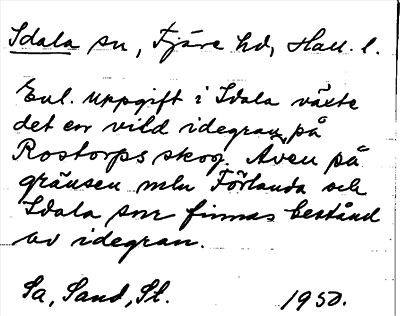 Idala sn, Fjäre hd, Hall. l.
Enl. uppgift i Idala växte
det en vild idegran på
Rostorps skog. Även på
gränsen mln Förlanda och
Idala snr finnas bestånd
av idegran.
Sa, Sand, St. 1950.